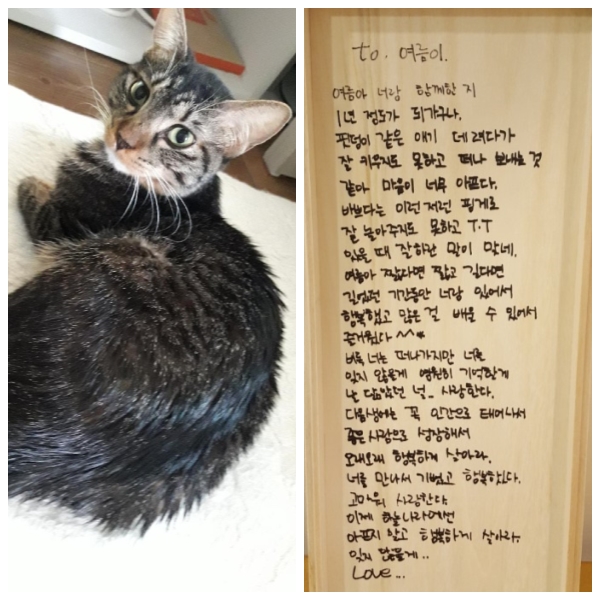 to. 여름이.
여름아 너랑 함께한 지
1년 정도가 되가구나.
핏덩이 같은 애기 데려다가
잘 키우지도 못하고 떠나 보내는 것
같아 마음이 너무 아프다.
바쁘다는 이런저런 핑계로
잘 놀아주지도 못하고 T.T
있을 때 잘하란 말이 맞네.
여름아 짧다면 짧고 길다면
길었던 기간동안 너랑 있어서
행복했고 많은 걸 배울 수 있어서
즐거웠다 ^^*
비록 너는 떠나가지만 너를
잊지 않을게 영원히 기억할게
난 닮았던 널_ 사랑한다.
다음생에는 꼭 인간으로 태어나서
좋은사람으로 성장해서
오래오래 행복하게 살아라.
너를 만나서 기뻤고 행복했다.
고마워 사랑한다
이제 하늘나라에선
아프지 않고 행복하게 살아라.
잊지 않을게..
Love...